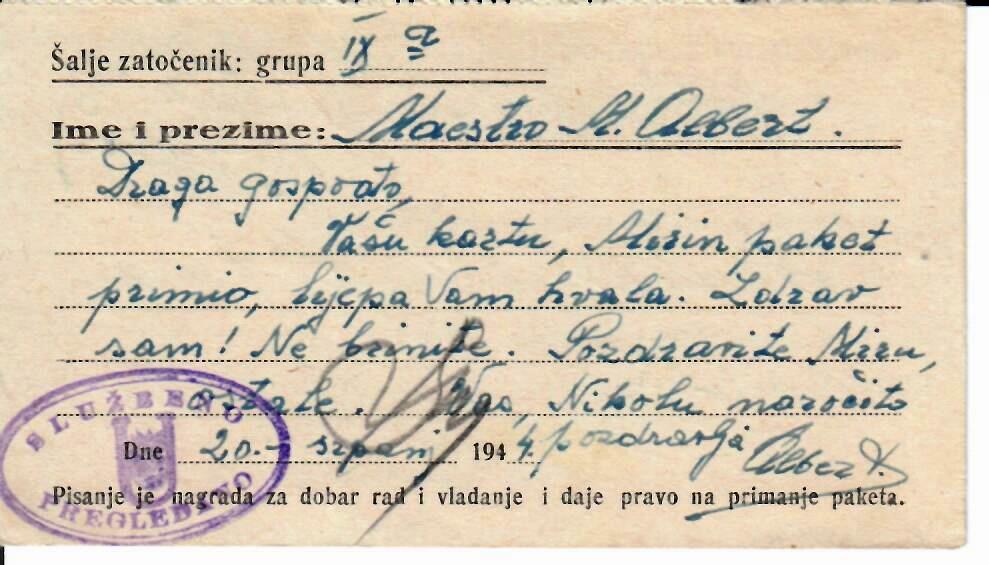 Šalje zatočenik: grupa IX a
Ime i prezime: Maestro M. Albert.
Draga gospođo,
Vašu kartu, Mirin paket
primio, lijepa Vam hvala. Zdrav
sam! Ne brinite. Pozdravite Miru,
ostale. Vas, Nikolu naročito
Dne 20.- srpanj 1944, pozdravlja Albert
Pisanje je nagrada za dobar rad i vladanje i daje pravo na primanje paketa.
SLUŽBENO
PREGLEDANO